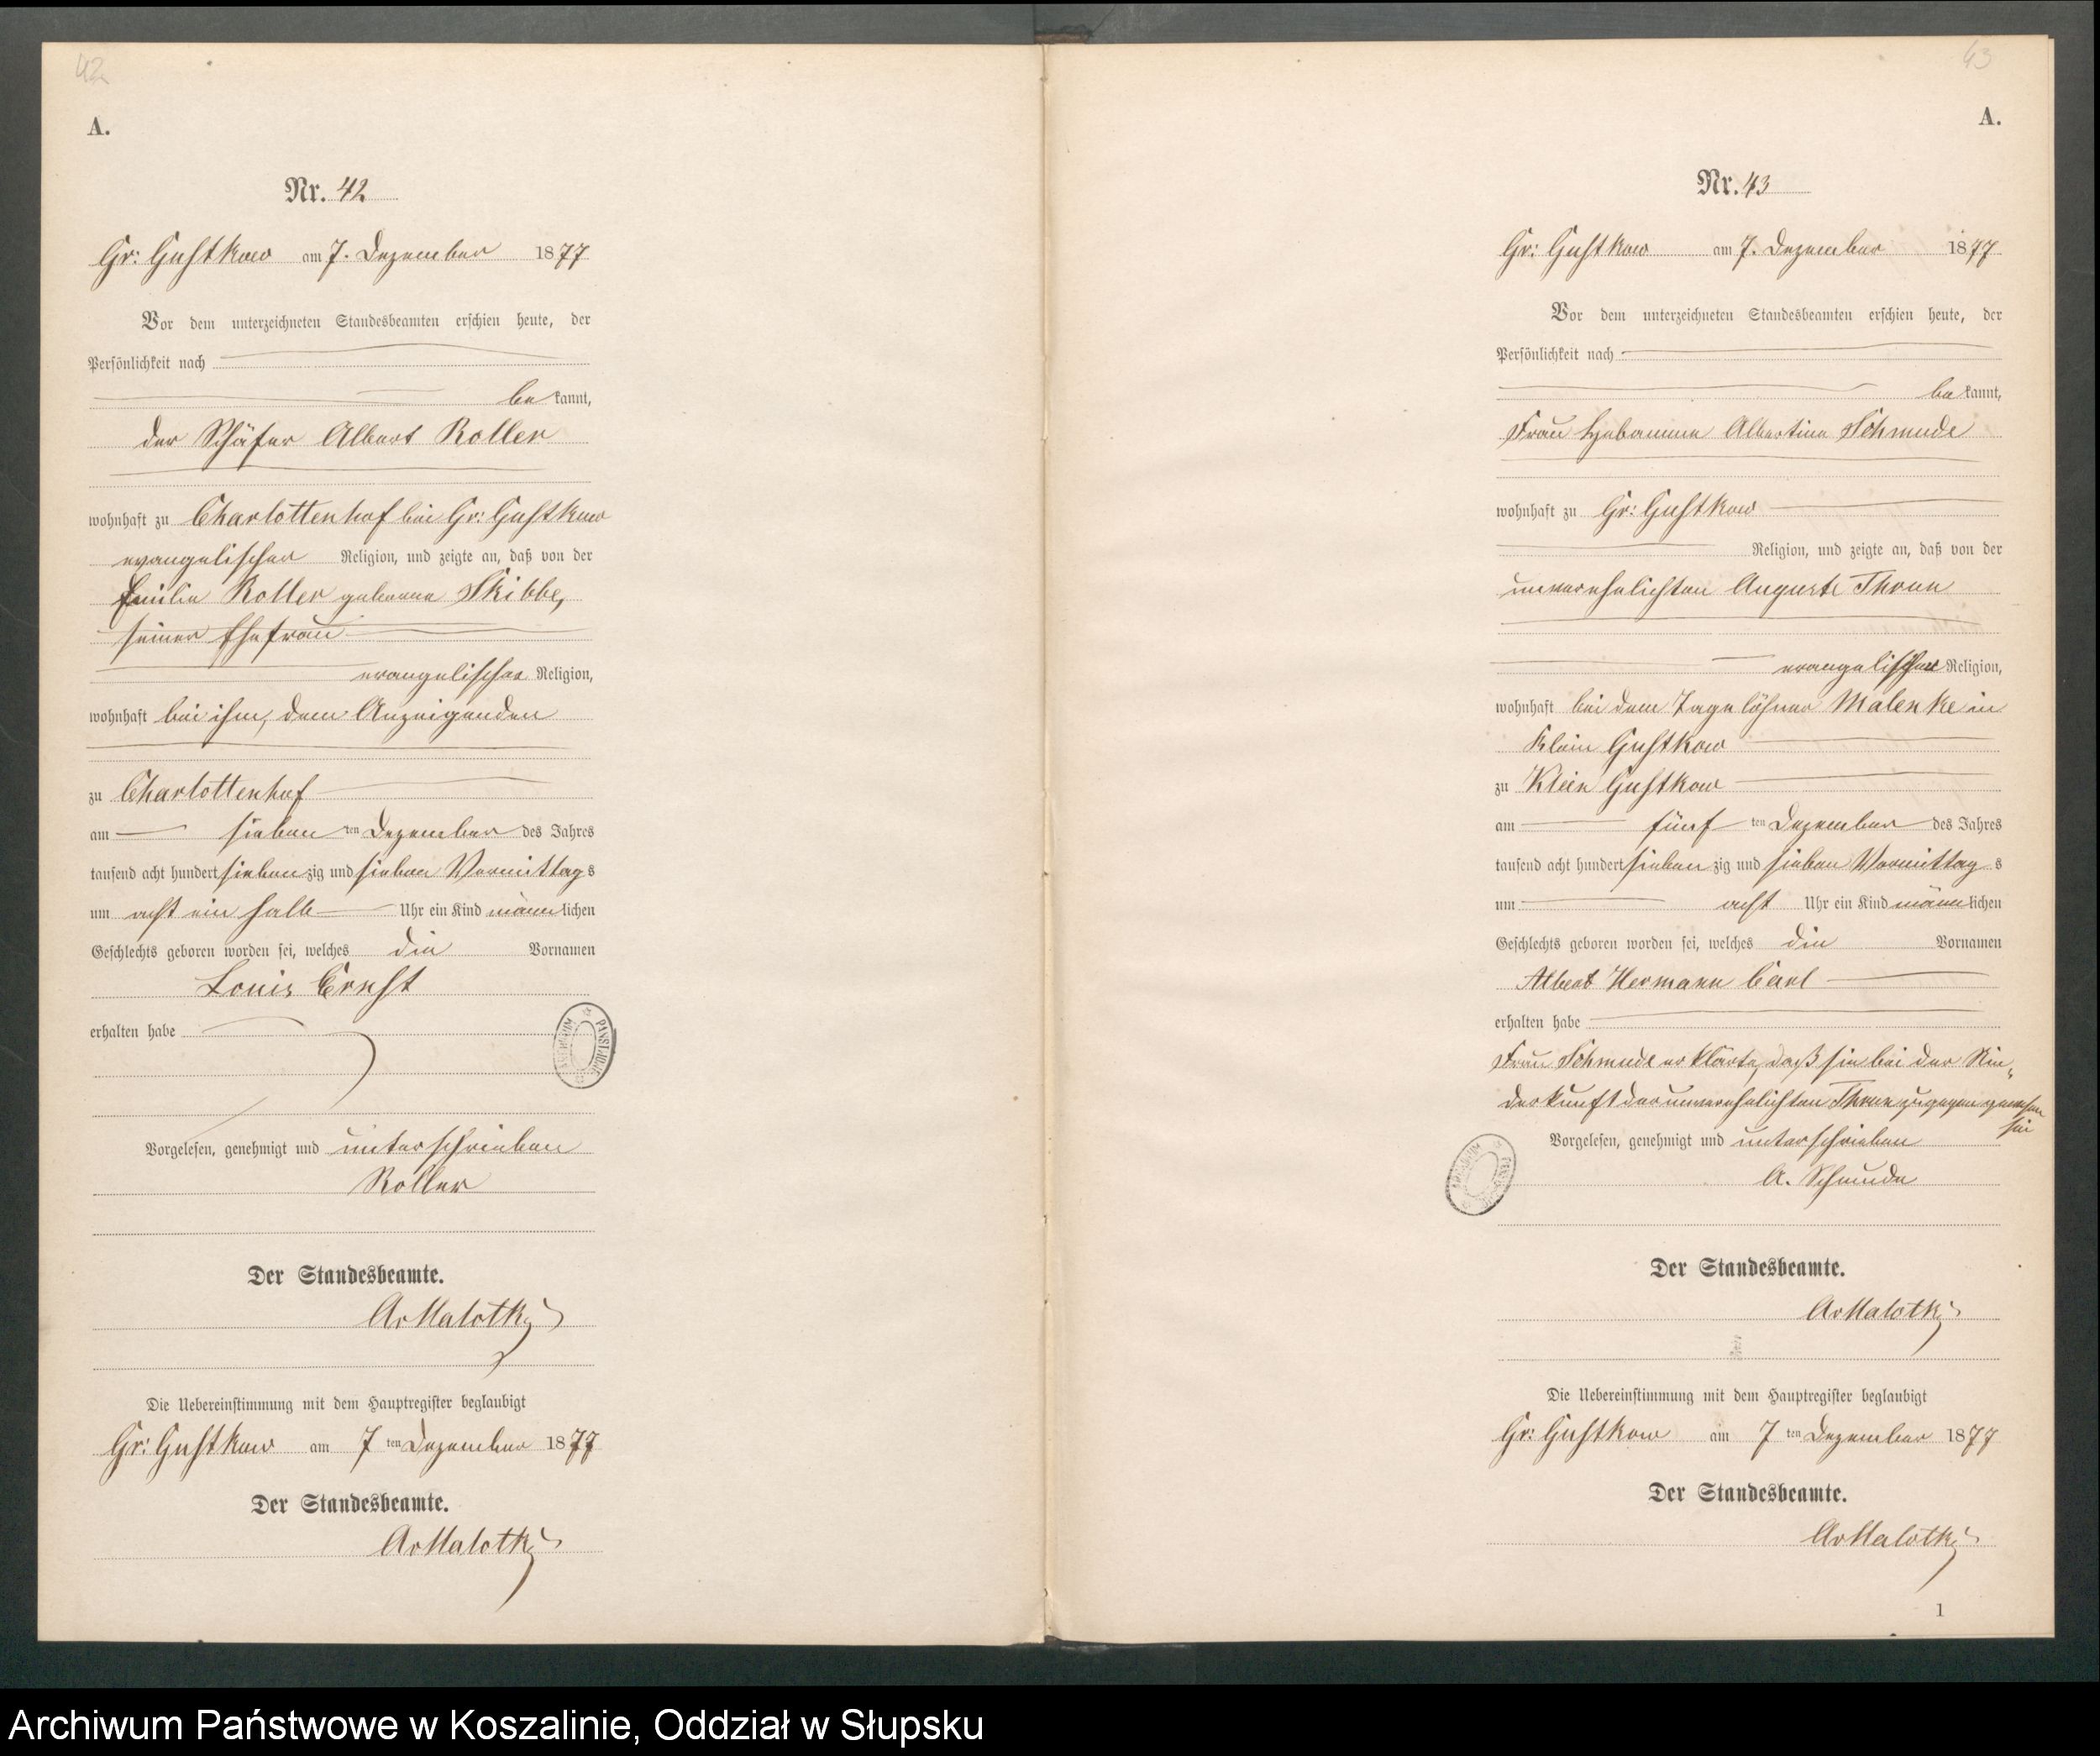 42
A.
Nr. 42
Gr: Gustkow am 7. Dezember 1877
Vor dem unterzeichneten Standesbeamten erschien heute, der
Persönlichkeit nach
be kannt,
der Schäfer Albert Roller
wohnhaft zu Charlottenhof bei Gr: Gustkow
evangelischer Religion, und zeigte an, daß von der
Emilie Roller geborene Skibbe,
seiner Ehefrau
evangelischer Religion,
wohnhaft bei ihm, dem Anzeigenden
zu Charlottenhof
am sieben ten Dezember des Jahres
tausend acht hundert sieben zig und sieben Vormittag s
um acht ein halb Uhr ein Kind männ lichen
Geschlechts geboren worden sei, welches die Vornamen
Louis Ernst
erhalten habe
Vorgelesen, genehmigt und unterschrieben
Roller
Der Standesbeamte.
AvMalotky
Die Uebereinstimmung mit dem Hauptregister beglaubigt
Gr: Gustkow am 7 ten Dezember 1877
Der Standesbeamte.
AvMalotky
43
A.
Nr. 43
Gr: Gustkow am 7. Dezember 1877
Vor dem unterzeichneten Standesbeamten erschien heute, der
Persönlichkeit nach
be kannt,
Frau Hebamme Albertine Schmude
wohnhaft zu Gr: Gustkow
Religion, und zeigte an, daß von der
unverehelichten Auguste Thrun
evangelischer Religion,
wohnhaft bei dem Tagelöhner Malenke in
Klein Gustkow
zu Klein Gustkow
am fünf ten Dezember des Jahres
tausend acht hundert sieben zig und sieben Vormittag s
um acht Uhr ein Kind männ lichen
Geschlechts geboren worden sei, welches die Vornamen
Albert Hermann Carl
erhalten habe
Frau Schmude erklärte, daß sie bei der Nie-
derkunft der unverehelichten Thrun zugegen gewesen
sei
Vorgelesen, genehmigt und unterschrieben
A. Schmude
Der Standesbeamte.
AvMalotky
Die Uebereinstimmung mit dem Hauptregister beglaubigt
Gr: Gustkow am 7 ten Dezember 1877
Der Standesbeamte.
AvMalotky
1
Archiwum Państwowe w Koszalinie, Oddział w Słupsku